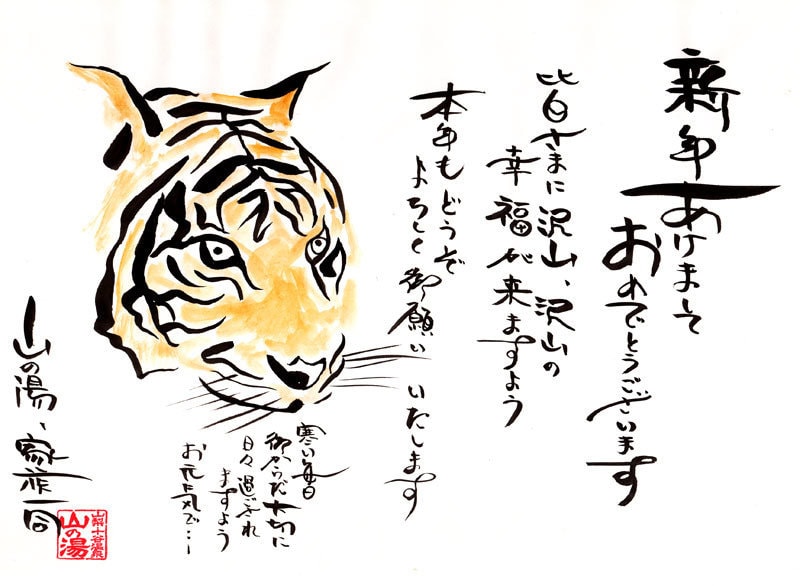 新年あけまして
おめでとうございます
皆さまに沢山、沢山の
幸福が来ますよう
本年もどうぞ
よろしく御願いいたします
寒い毎日
御からだ大切に
日々過ごされ
ますよう
お元気で…
山の湯、家族一同
山の湯